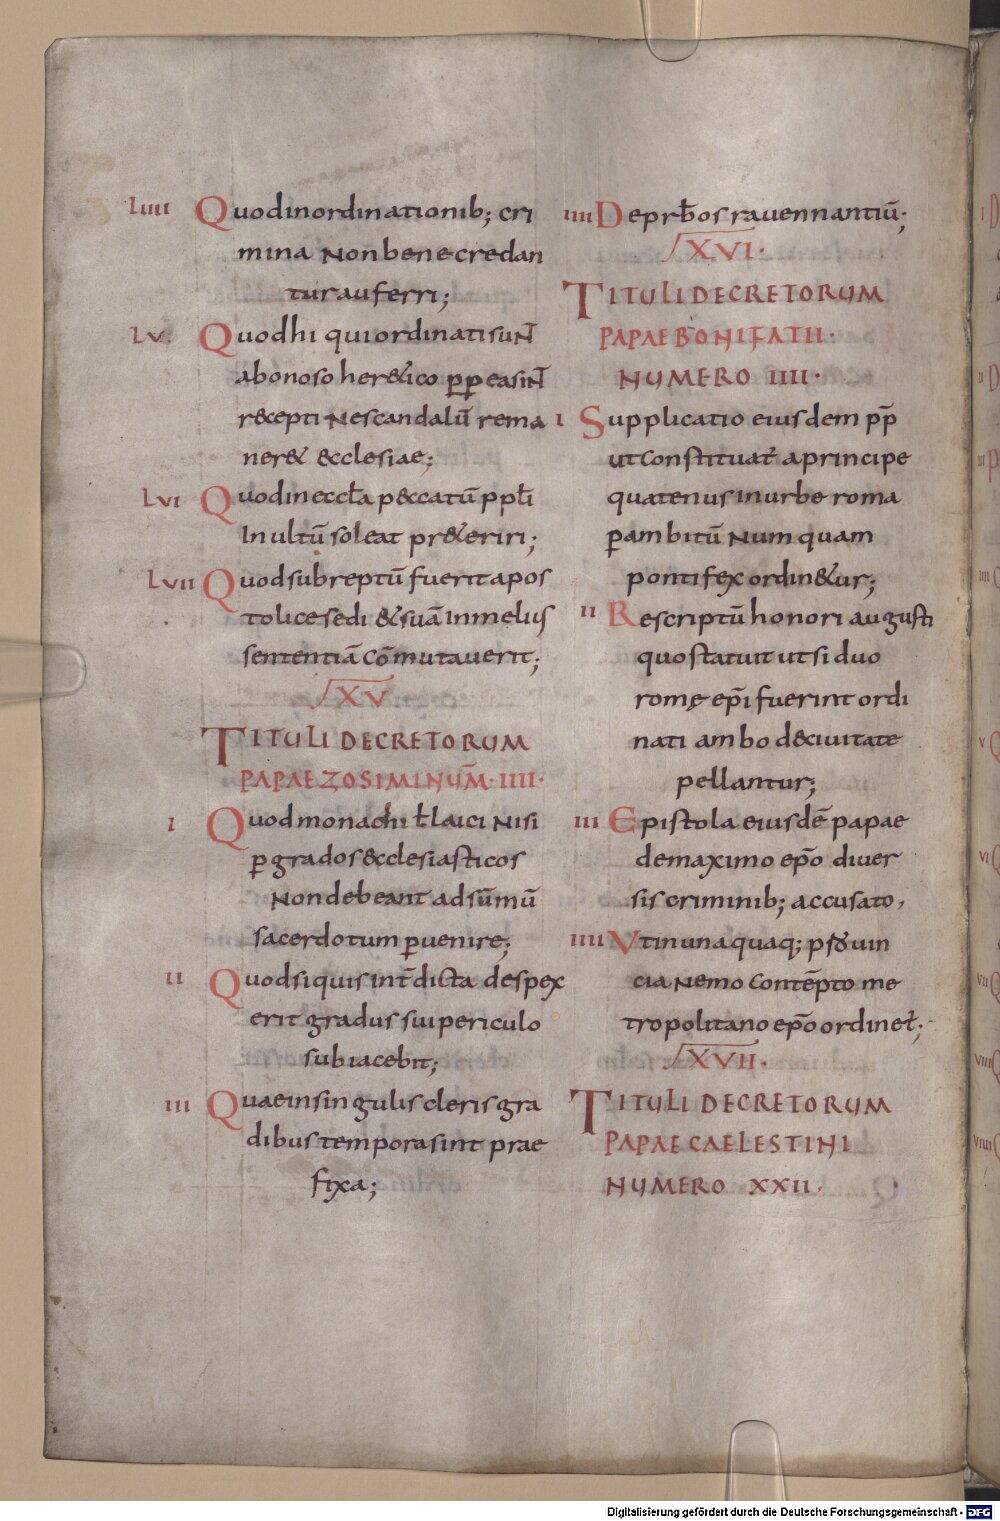 Liiii Quod in ordinationib; cri
mina Non bene credan
tur auferri;
Lv. Quod hi qui ordinati suNT̄
a bonoso her&ico p̲p̲ea siNT̄
recepti Ne scandalū rema
ner& ecclesiae;
Lvi Quod in eccƚa peccatū ppƚi
In ultū soleat pr&eriri;
Lvii Quod subreptū fuerit apos
tolice sedi & suā in melius
sententiā cōmutaverit;
XV
TITULI DECRETORUM
PAPAE ZOSIMI NUM̄·IIII·
I Quod monachi ƚ laici Nisi
p̲ grados ecclesiasticos
Non debeant ad sūmū
sacerdotum p̲uenire;
II Quod si quis int̄dicta despex
erit gradus sui periculo
subiacebit;
III Quae in singulis cleris gra
dibus tempora sint prae
fixa;
IIII De prƀos rauennantiū;
XVI·
TITULI DECRETORUM
PAPAE BONIFATII·
NUMERO IIII·
I Supplicatio eiusdem pp̄
ut constituat̄ a principe
quatenus in urbe roma
p̲ ambitū Numquam
pontifex ordin&ur;
II Rescriptū honori augusti
quo statuit ut si duo
romę ep̄i fuerint ordi
nati ambo de ciuitate
pellantur;
III Epistola eiusdē papae
de maximo ep̄o diuer
sis criminib; accusato,
IIII Vt in unaquaq; p̲ouin
cia Nemo contēpto me
tropolitano ep̄o ordinet̄;
XVII·
TITULI DECRETORUM
PAPAE CAELESTINI
NUMERO XXII·
Digitalisierung gefördert durch die Deutsche Forschungsgemeinschaft - DFG